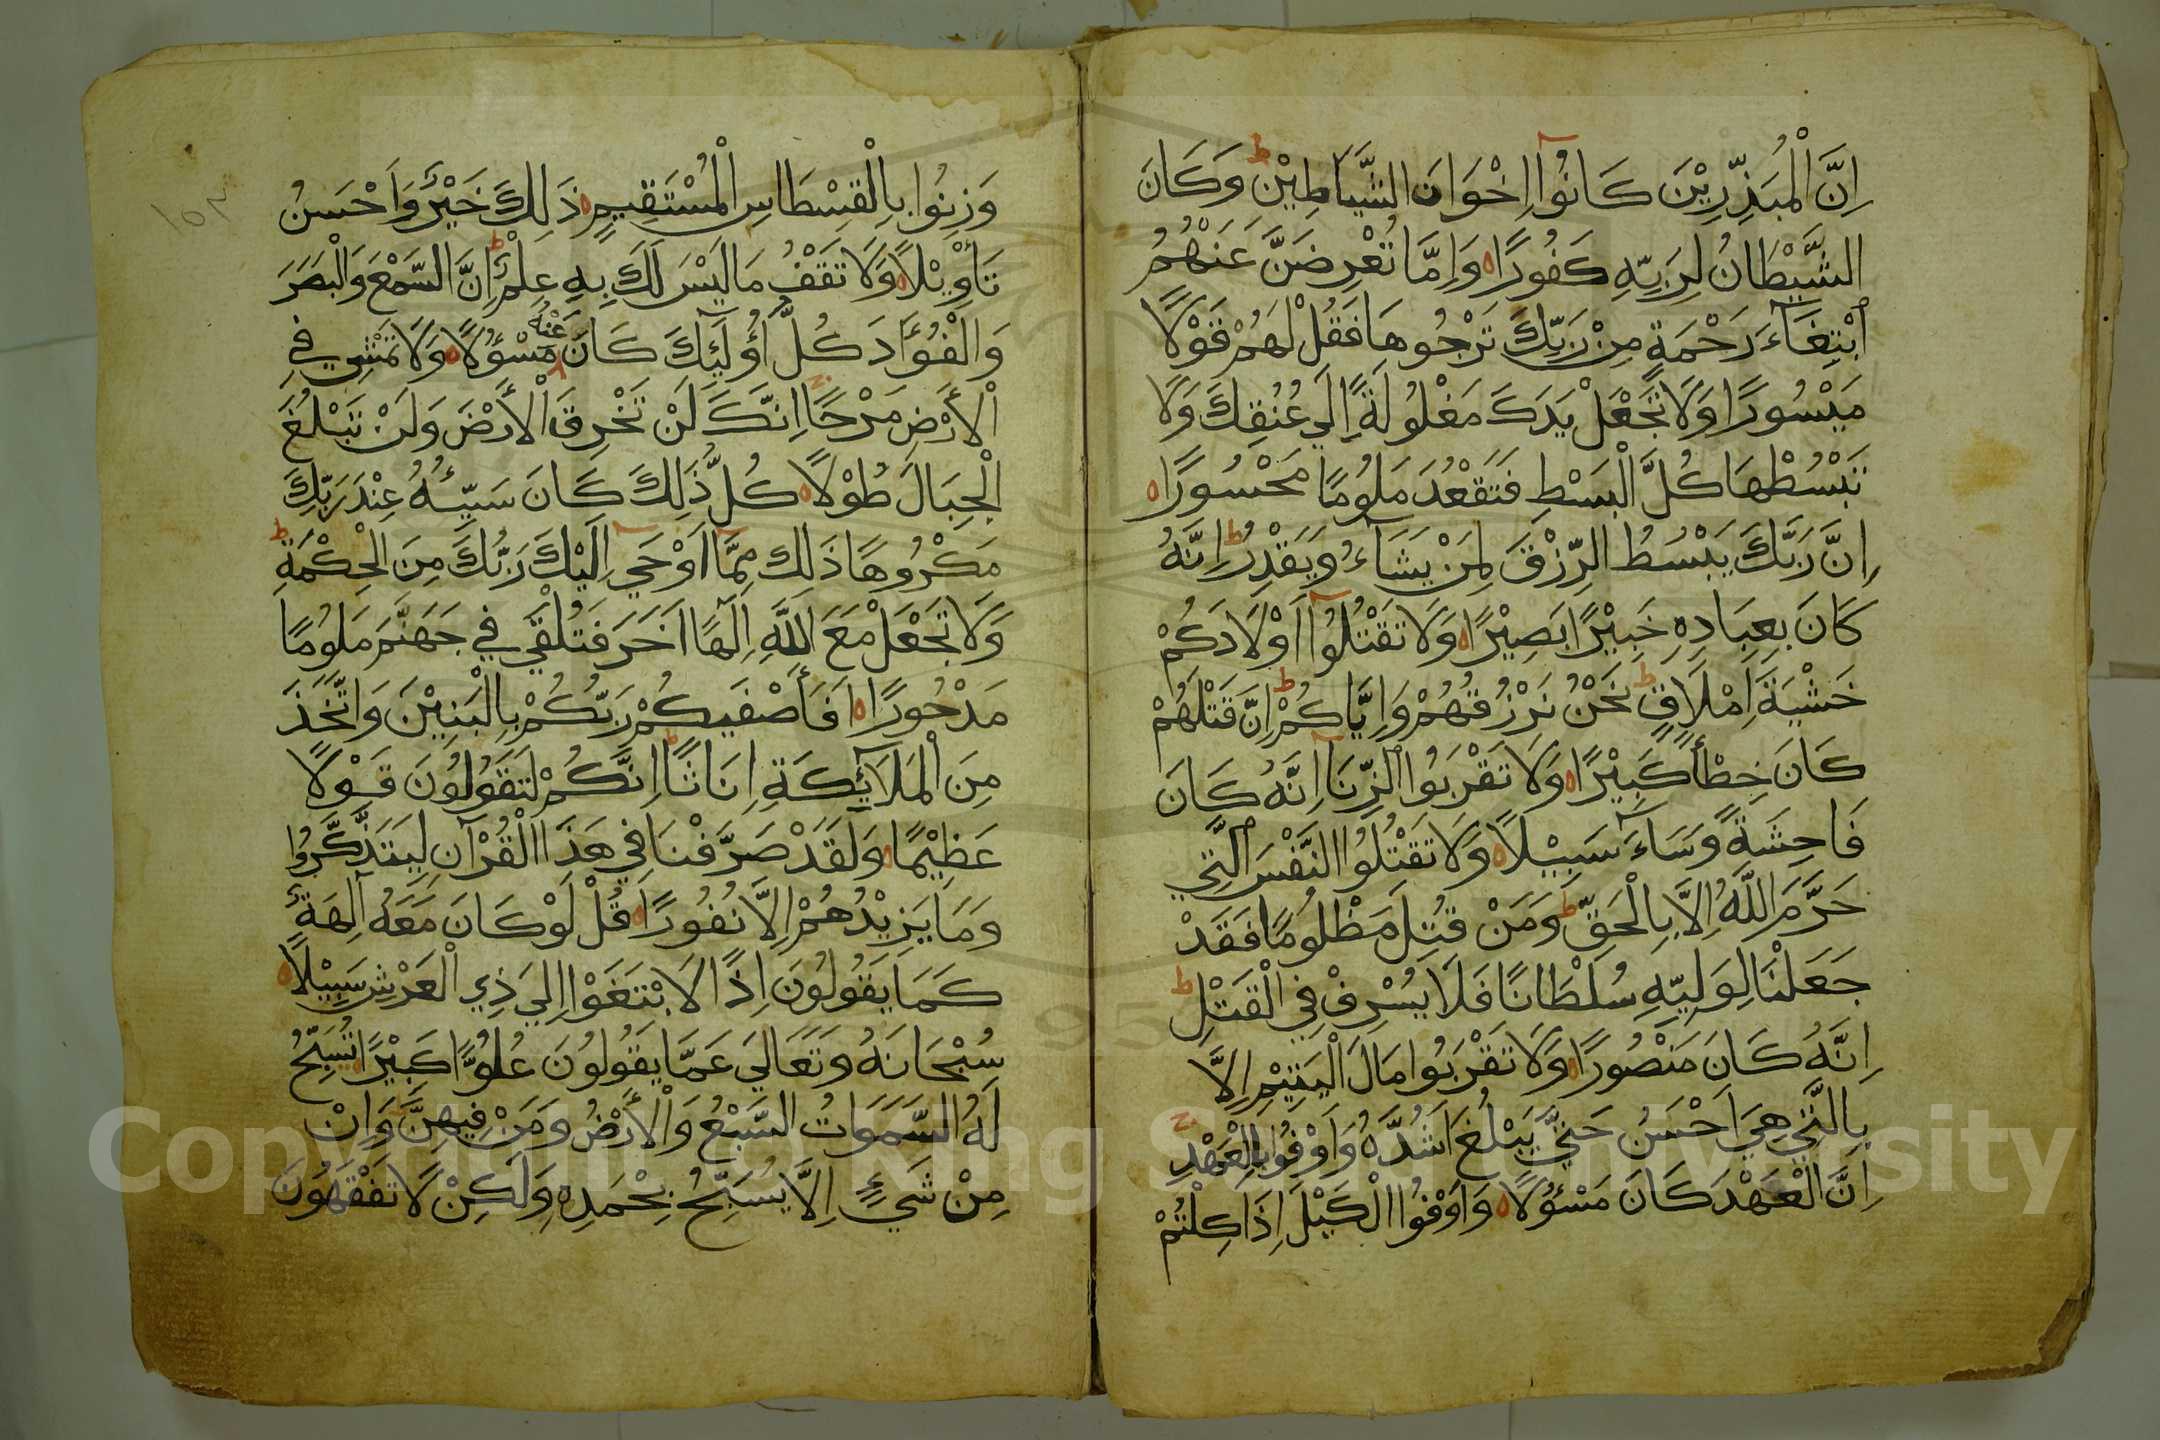 اِنَّ الْمُبَذِّرِيْنَ كَانُوا اِخْوَانَ الشَّيَاطِيْنِ ط وَكَانَ
الشَّيْطَانُ لِرَبِّهِ كَفُورًا ه وَاِمَّا تُعْرِضَنَّ عَنْهُمُ
ابْتِغَآءَ رَحْمَةٍ مِنْ رَبِّكَ تَرْجُوهَا فَقُلْ لَهُمْ قَوْلًا
مَيْسُورًا وَلَا تَجْعَلْ يَدَكَ مَغْلُولَةً اِلَي عُنُقِكَ وَلَا
تَبْسُطْهَا كُلَّ الْبَسْطِ فَتَقْعُدَ مَلُومًا مَحْسُورًا ه
اِنَّ رَبَّكَ يَبْسُطُ الرِّزْقَ لِمَنْ يَشَآءُ وَيَقْدِرُ ط اِنَّهُ
كَانَ بِعِبَادِهِ خَبِيْرًا بَصِيْرًا ه وَلَا تَقْتُلُوا اَوْلَادَكُمْ
خَشْيَةَ اِمْلَاقٍ ط نَحْنُ نَرْزُقُهُمْ وَاِيَّاكُمْ ط اِنَّ قَتْلَهُمْ
كَانَ خِطْأً كَبِيْرًا ه وَلَا تَقْرَبُوا الزِّنَا اِنَّهُ كَانَ
فَاحِشَةً وَسَآءَ سَبِيْلًا ه وَلَا تَقْتُلُوا النَّفْسَ الَّتِي
حَرَّمَ اللَّهُ اِلَّا بِالْحَقِّ ط وَمَنْ قُتِلَ مَظْلُومًا فَقَدْ
جَعَلْنَا لِوَلِيِّهِ سُلْطَانًا فَلَا يُسْرِفْ فِي الْقَتْلِ ط
اِنَّهُ كَانَ مَنْصُورًا ه وَلَا تَقْرَبُوا مَالَ الْيَتِيْمِ اِلَّا
بِالَّتِي هِيَ اَحْسَنُ حَتَّي يَبْلُغَ اَشُدَّهُ وَاَوْفُوا بِالْعَهْدِ ج
اِنَّ الْعَهْدَ كَانَ مَسْؤُلًا ه وَاَوْفُوا الْكَيْلَ اِذَا كِلْتُمْ
١٥٣
وَزِنُوا بِالْقِسْطَاسِ الْمُسْتَقِيمِ ه ذَلِكَ خَيْرٌ وَاَحْسَنُ
تَأْوِيْلًا ه وَلَا تَقْفُ مَا لَيْسَ لَكَ بِهِ عِلْمٌ ط اِنَّ السَّمْعَ وَالْبَصَرَ
وَالْفُؤَادَ كُلُّ اُولَئِكَ كَانَ عَنْهُ مَسْؤُلًا ه وَلَا تَمْشِي فِي
الْأَرْضِ مَرَحًا ج اِنَّكَ لَنْ تَخْرِقَ الْأَرْضَ وَلَنْ تَبْلُغَ
الْجِبَالَ طُوْلًا ه كُلُّ ذَلِكَ كَانَ سَيِّئُهُ عِنْدَ رَبِّكَ
مَكْرُوهًا ذَلِكَ مِمَّا اَوْحَي اِلَيْكَ رَبُّكَ مِنَ الْحِكْمَةِ ط
وَلَا تَجْعَلْ مَعَ اللَّهِ اِلَهًا اَخَرَ فَتُلْقَي فِي جَهَنَّمَ مَلُومًا
مَدْحُورًا ه اَفَأَصْفَيكُمْ رَبُّكُمْ بِالْبَنِيْنَ وَاتَّخَذَ
مِنَ الْمَلَآئِكَةِ اِنَاثًا ط اِنَّكُمْ لَتَقُولُونَ قَوْلًا
عَظِيْمًا ه وَلَقَدْ صَرَّفْنَا فِي هَذَا الْقُرْآنِ لِيَتَذَكَّرُوا
وَمَا يَزِيْدُهُمْ اِلَّا نُفُورًا ه قُلْ لَوْ كَانَ مَعَهُ آلِهَةٌ
كَمَا يَقُولُونَ اِذًا لَابْتَغَوْا اِلَي ذِي الْعَرْشِ سَبِيْلًا ه
سُبْحَانَهُ وَتَعَالَي عَمَّا يَقُولُونَ عُلُوًّا كَبِيْرًا ه تُسَبِّحُ
لَهُ السَّمَوَاتُ السَّبْعُ وَالْأَرْضُ وَمَنْ فِيهِنَّ وَاِنْ
مِنْ شَيْءٍ اِلَّا يُسَبِّحُ بِحَمْدِهِ وَلَكِنْ لَا تَفْقَهُونَ